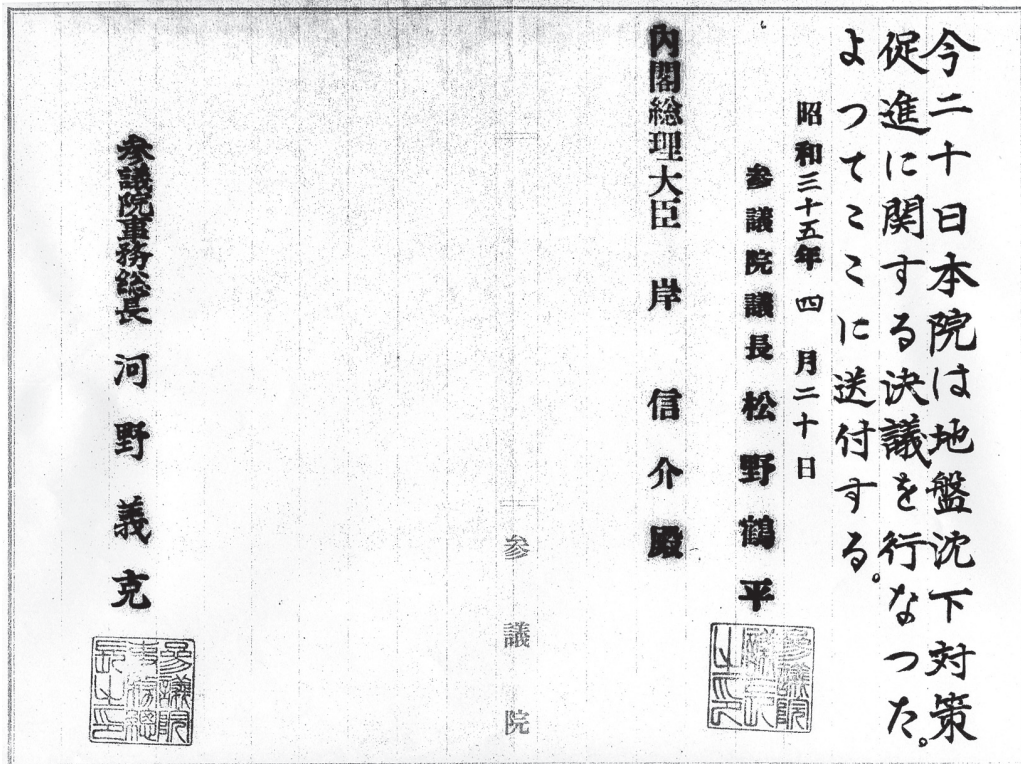 今二十日本院は地盤沈下対策
促進に関する決議を行なつた。
よつてここに送付する。
昭和三十五年四月二十日
参議院議長 松野鶴平
参議院議長之印
内閣総理大臣 岸信介殿
参議院
参議院事務総長 河野義克
参議院事務総長之印